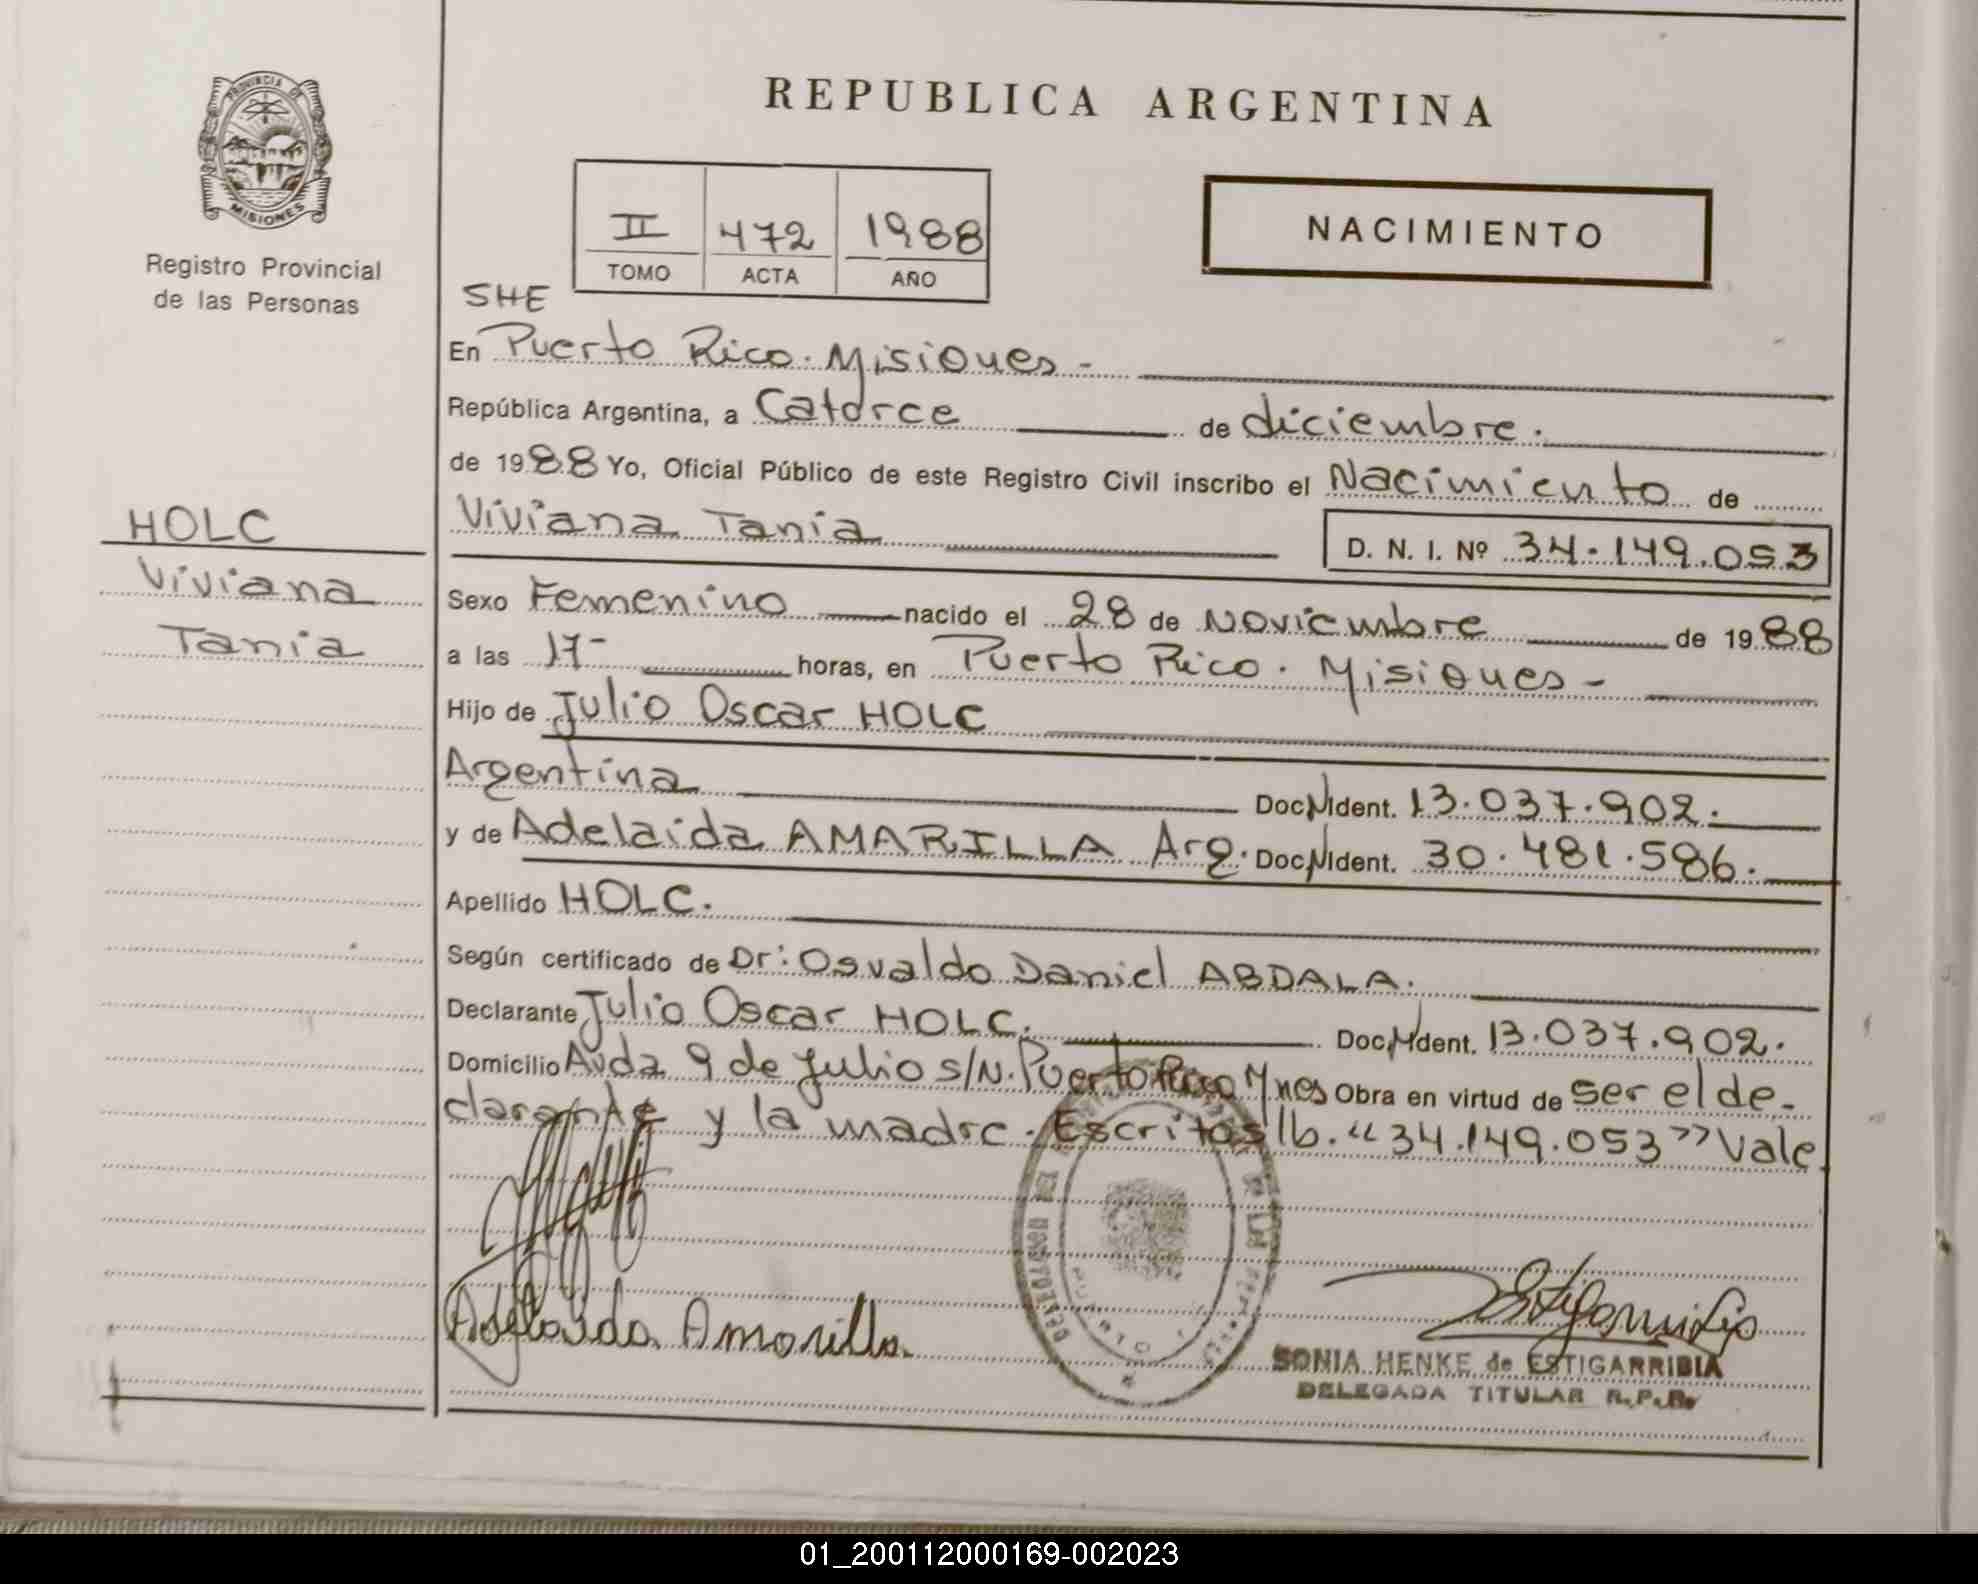 REPUBLICA ARGENTINA
PROVINCIA DE
MISIONES
Registro Provincial
de las Personas
II 472 1988
TOMO ACTA AÑO
NACIMIENTO
SHE
En Puerto Rico. Misiones -
República Argentina, a Catorce de diciembre.
de 1988 Yo, Oficial Público de este Registro Civil inscribo el Nacimiento de
Viviana Tania
D. N. I. Nº 34.149.053
HOLC
Viviana
Tania
Sexo Femenino nacido el 28 de Noviembre de 1988
a las 17- horas, en Puerto Rico. Misiones -
Hijo de Julio Oscar HOLC
Argentina Doc. Ident. 13.037.902.
y de Adelaida AMARILLA Arg. Doc. Ident. 30.481.586.
Apellido HOLC.
Según certificado de Dr: Osvaldo Daniel ABDALA.
Declarante Julio Oscar HOLC. Doc. Ident. 13.037.902.
Domicilio Avda 9 de Julio s/N. Puerto Rico Mnes Obra en virtud de ser el de-
clarante y la madre. Escritos lb. "34.149.053" Vale
Adelaida Amarilla
SONIA HENKE de ESTIGARRIBIA
DELEGADA TITULAR R.P.P.
01_200112000169-002023